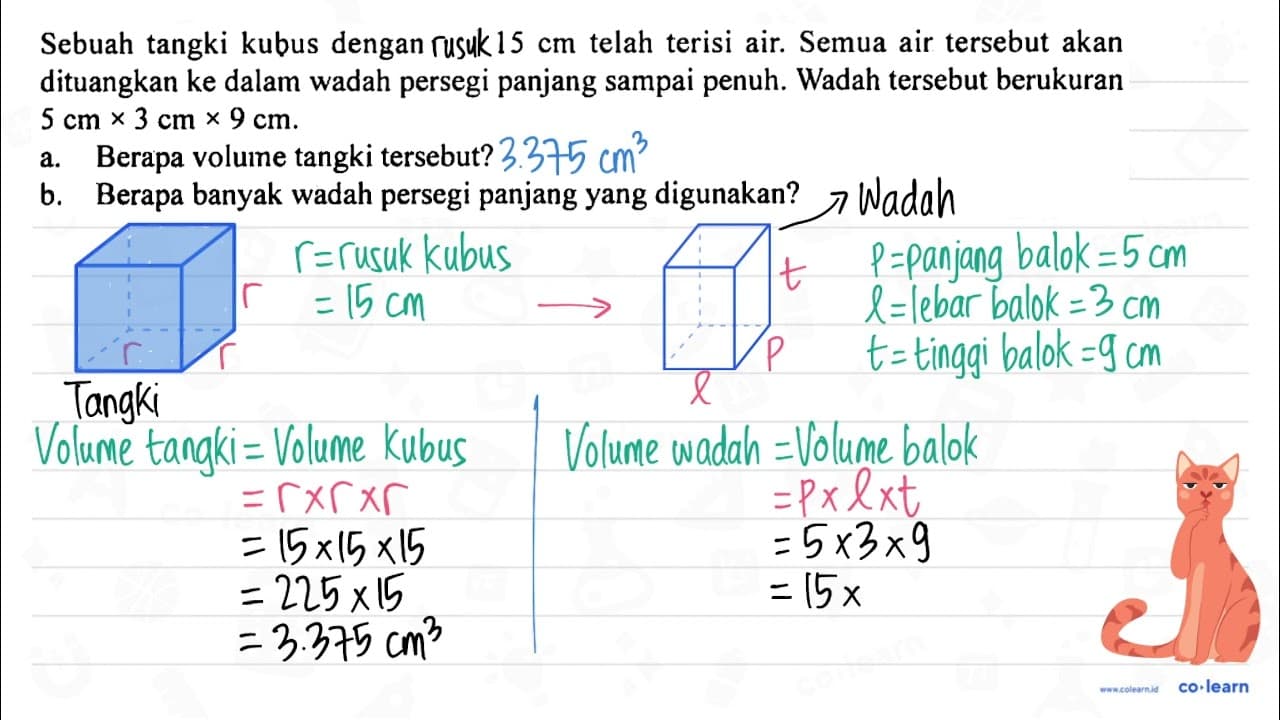 Sebuah tangki kubus dengan rusuk 15 cm telah terisi air. Semua air tersebut akan
dituangkan ke dalam wadah persegi panjang sampai penuh. Wadah tersebut berukuran
5 cm × 3 cm × 9 cm.
a. Berapa volume tangki tersebut? 3.375 cm³
b. Berapa banyak wadah persegi panjang yang digunakan?
Wadah
r = rusuk kubus
= 15 cm
r
r
r
Tangki
t
p
l
P = panjang balok = 5 cm
l = lebar balok = 3 cm
t = tinggi balok = 9 cm
Volume tangki = Volume kubus
= r × r × r
= 15 × 15 × 15
= 225 × 15
= 3.375 cm³
Volume wadah = Volume balok
= P × l × t
= 5 × 3 × 9
= 15 ×
www.colearn.id
co·learn